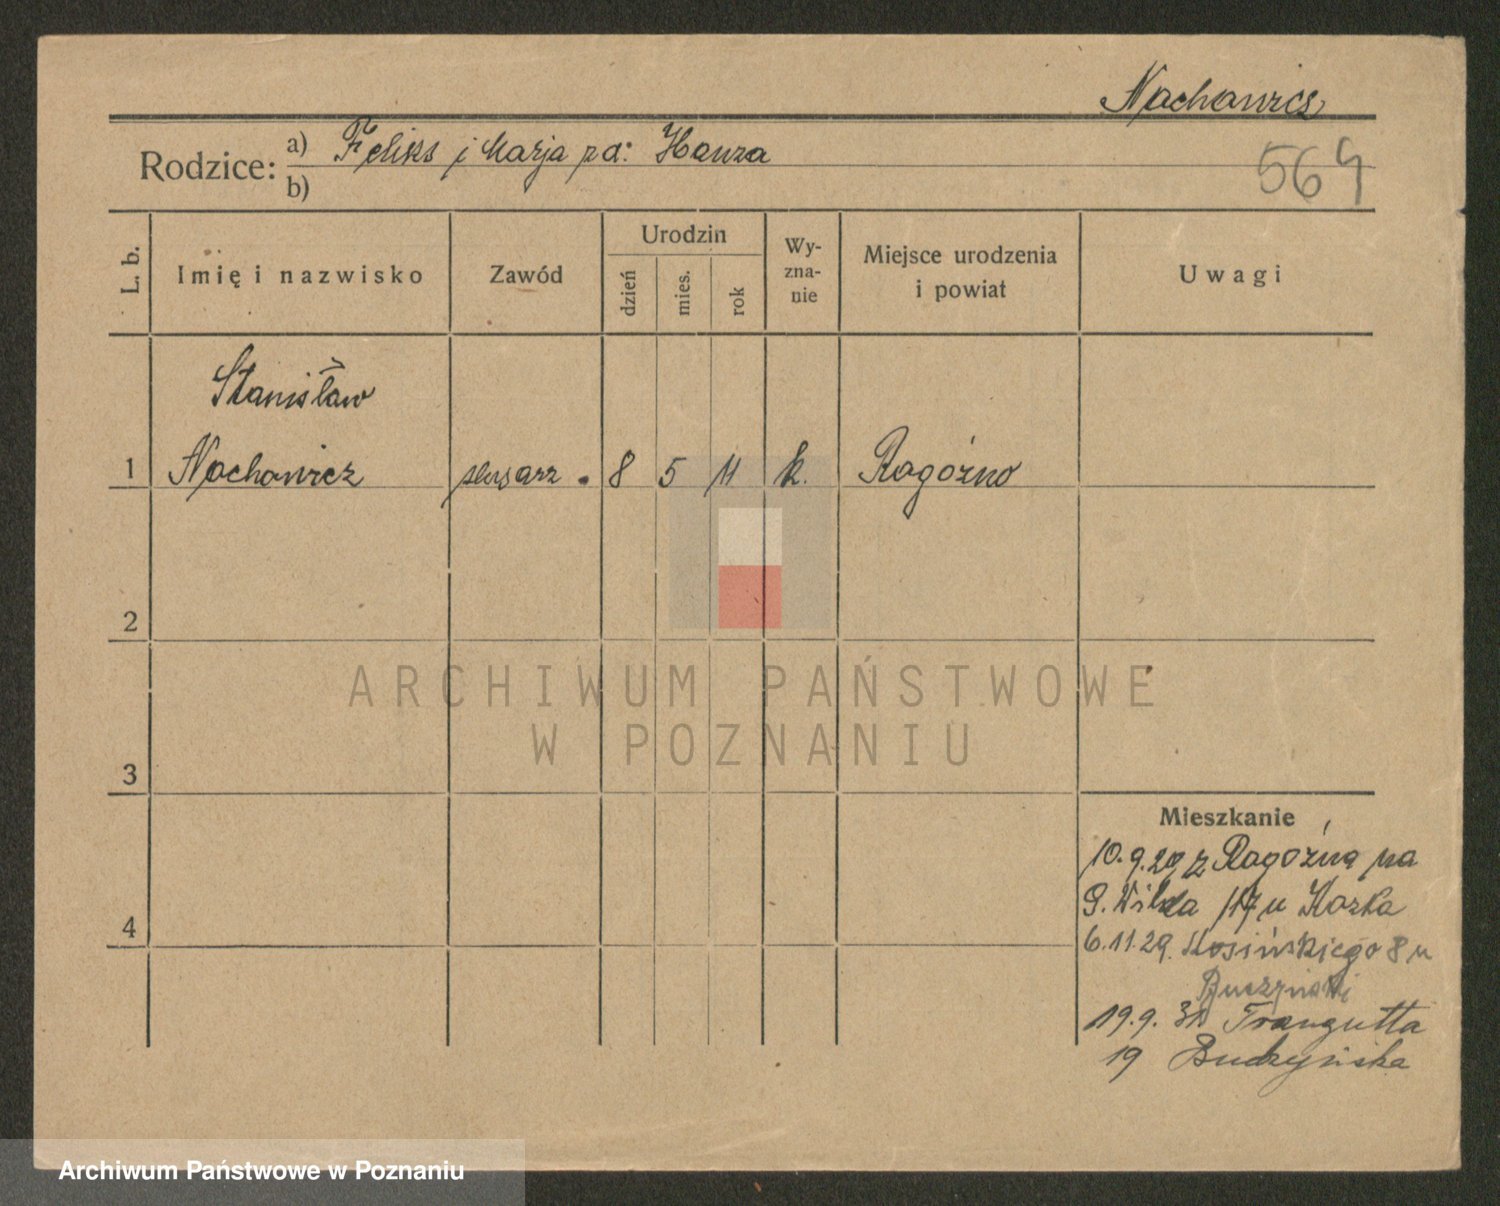 Nachowicz
Rodzice: a) Feliks i Marja zd: Hanza
b)
564
L. b.
Imię i nazwisko
Zawód
Urodzin
dzień
mies.
rok
Wy-
zna-
nie
Miejsce urodzenia
i powiat
Uwagi
Stanisław
1 Nachowicz ślusarz 8 5 11 k. Rogóźno
2
3
4
ARCHIWUM PAŃSTWOWE
W POZNANIU
Mieszkanie
10.9.29 z Rogoźna na
G. Wilda 117 u Kozka
6.11.29. Kosińskiego 8 u
19.9.31 Traugutta
19 Budzyńska
Archiwum Państwowe w Poznaniu